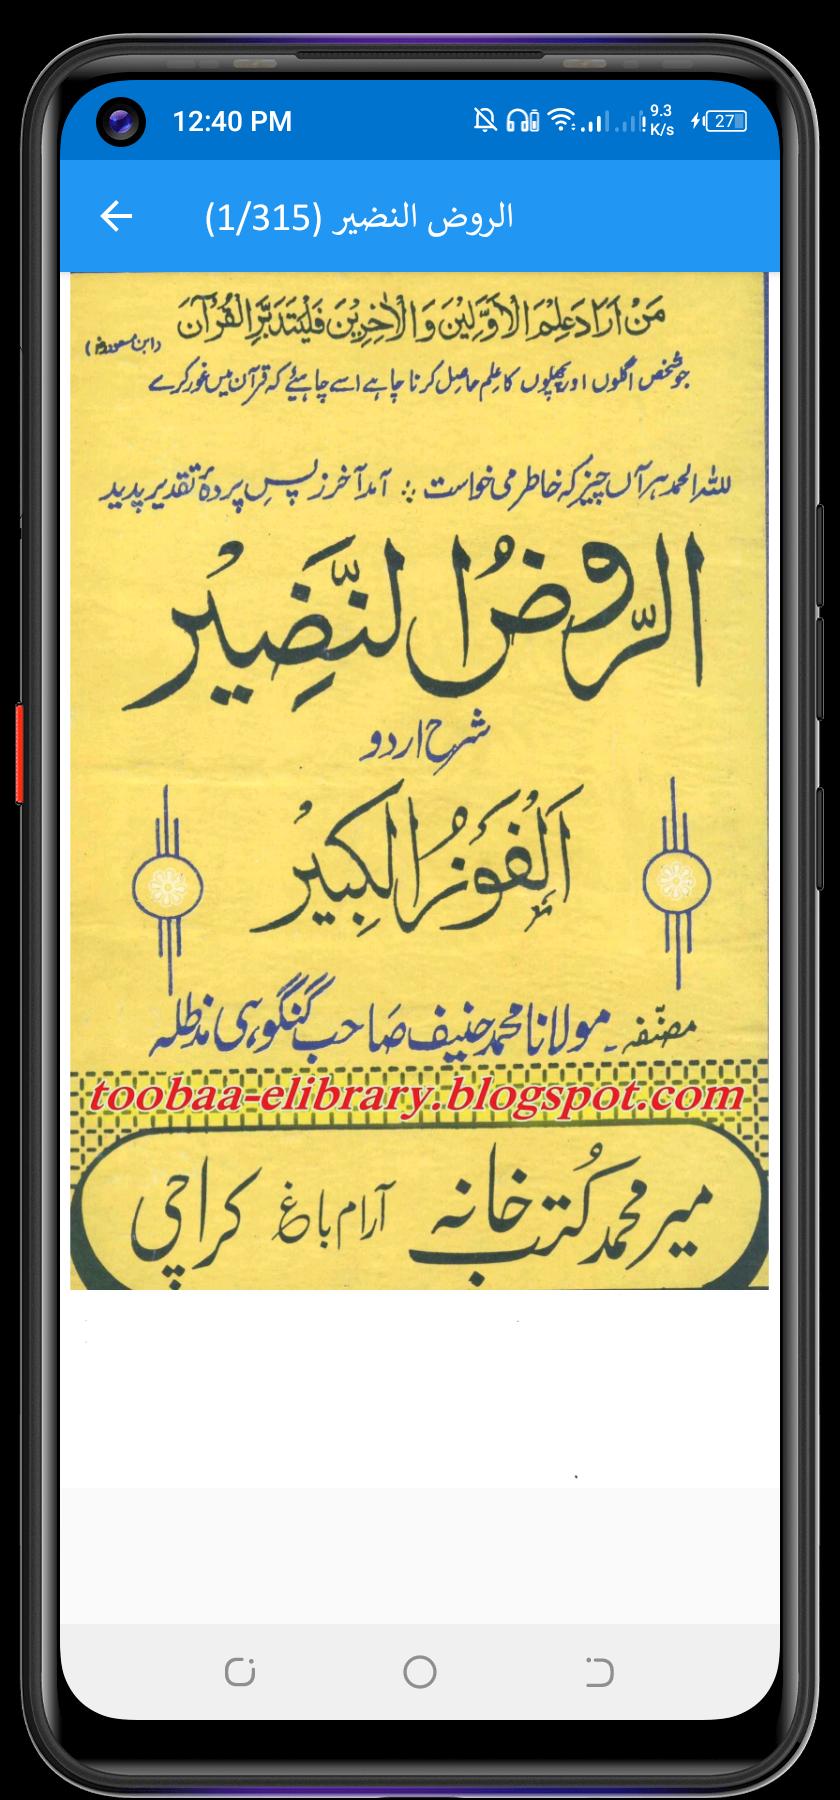 12:40 PM 9.3 K/s 27
الروض النضير (1/315)
مَنْ اَرَادَ عِلْمَ الْاَوَّلِيْنَ وَالْاٰخِرِيْنَ فَلْيَتَدَبَّرِ الْقُرْآنَ
(ابن مسعودؓ)
جو شخص اگلوں اور پچھلوں کا علم حاصل کرنا چاہے اسے چاہیئے کہ قرآن میں غور کرے
للہ الحمد ہر آں چیز کہ خاطر می خواست ؞ آمد آخر ز پسِ پردۂ تقدیر پدید
الرَّوضُ النَّضِيْر
شرح اردو
اَلْفَوْزُ الْكَبِيْر
مصنّفہ ۔ مولانا محمد حنیف صاحب گنگوہی مدظلہ
toobaa-elibrary.blogspot.com
میر محمد کُتب خانہ آرام باغ کراچی